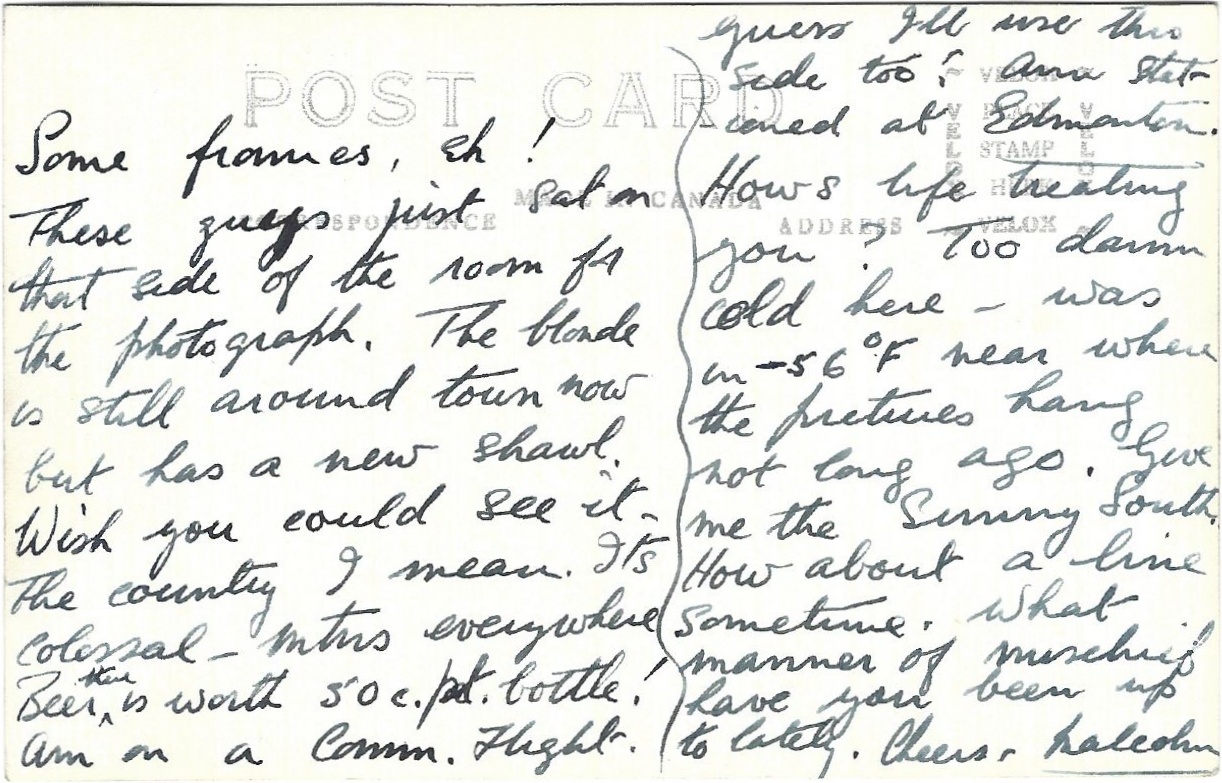 POST CARD
MADE IN CANADA
CORRESPONDENCE
ADDRESS
VELOX
PLACE
STAMP
HERE
VELOX
Some frames, eh!
These guys just sat on
that side of the room for
the photograph. The blonde
is still around town now
but has a new shawl.
Wish you could see it –
the country I mean. It's
colossal – mtns everywhere
Beer there is worth 50 c. pt. bottle!
am on a Comm. Flight.
guess I'll use this
side too! Am stat-
ioned at Edmonton.
Hows life treating
you? Too damn
cold here – was
in -56°F near where
the pictures hang
not long ago. Give
me the Sunny South.
How about a line
sometime. What
manner of mischief
have you been up
to lately. Cheers. Malcolm